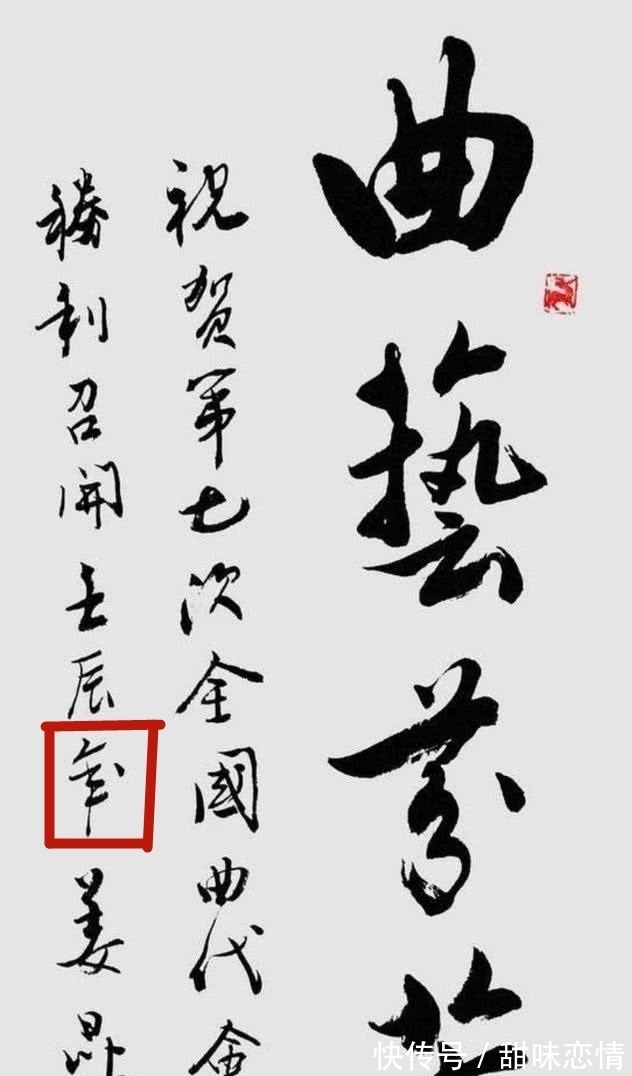 曲藝芬
祝贺第七次全國曲代會
勝利召開壬辰年姜昆
快传号 / 甜味恋情